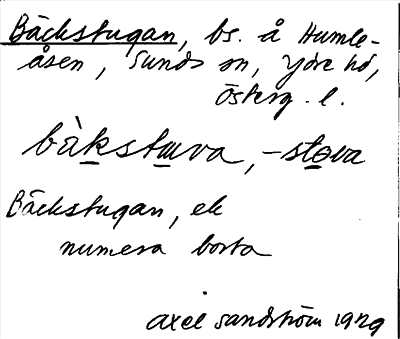 Bäckstugan, bs. å Humle-
åsen, Sunds sn, Ydre hd,
Österg. l.
bàkstuva, -stova
Bäckstugan, ek
numera borta
Axel Sandström 1929